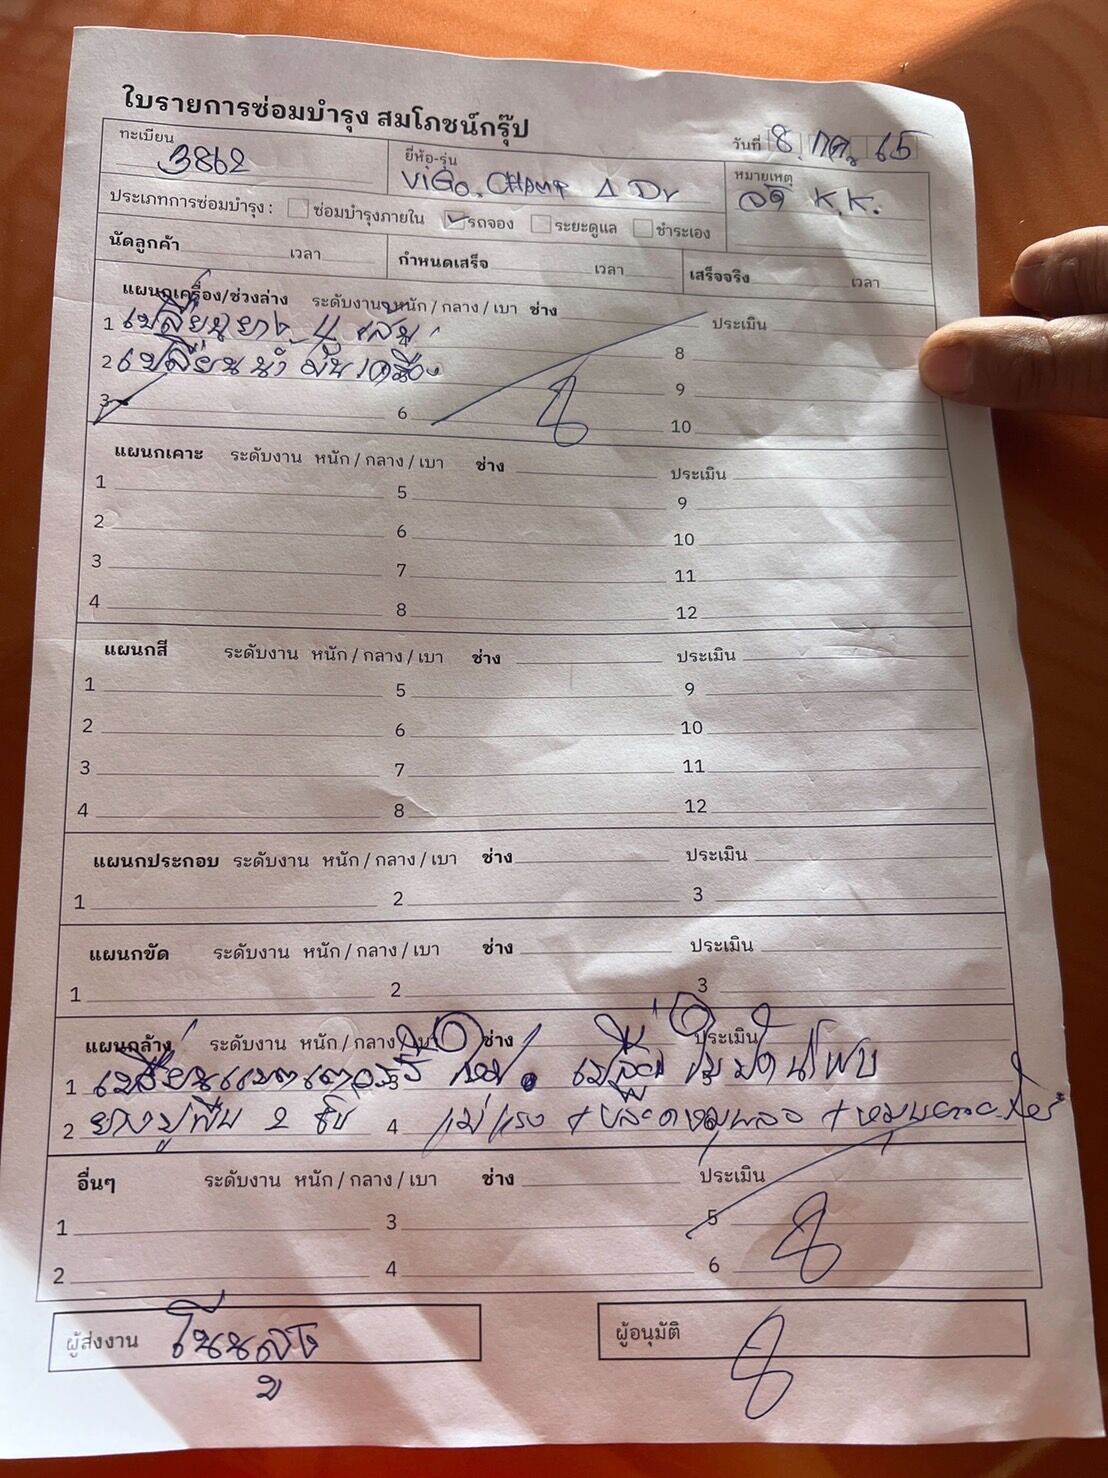 ใบรายการซ่อมบำรุง สมโภชน์กรุ๊ป
วันที่ 8. กค. 65
ทะเบียน 3862 ยี่ห้อ-รุ่น ViGo. CHAMP 4 Dr หมายเหตุ K.K.
ประเภทการซ่อมบำรุง : ซ่อมบำรุงภายใน รถจอง ระยะดูแล ชำระเอง
นัดลูกค้า เวลา กำหนดเสร็จ เวลา เสร็จจริง เวลา
แผนกเครื่อง/ช่วงล่าง ระดับงาน หนัก / กลาง / เบา ช่าง ประเมิน
1 เปลี่ยนยาง 4 เส้น 8
2 เปลี่ยนน้ำมันเครื่อง 9
3 6 10
แผนกเคาะ ระดับงาน หนัก / กลาง / เบา ช่าง ประเมิน
1 5 9
2 6 10
3 7 11
4 8 12
แผนกสี ระดับงาน หนัก / กลาง / เบา ช่าง ประเมิน
1 5 9
2 6 10
3 7 11
4 8 12
แผนกประกอบ ระดับงาน หนัก / กลาง / เบา ช่าง ประเมิน
1 2 3
แผนกขัด ระดับงาน หนัก / กลาง / เบา ช่าง ประเมิน
1 2 3
แผนกล้าง ระดับงาน หนัก / กลาง / เบา ช่าง ประเมิน
1 เปลี่ยนแบตเตอรี่ ใหม่. เปลี่ยน ใบปัดน้ำฝน
2 ยางปูพื้น 2 ชิ้น 4 แม่แรง +
อื่นๆ ระดับงาน หนัก / กลาง / เบา ช่าง ประเมิน
1 3 5
2 4 6
ผู้ส่งงาน ผู้อนุมัติ